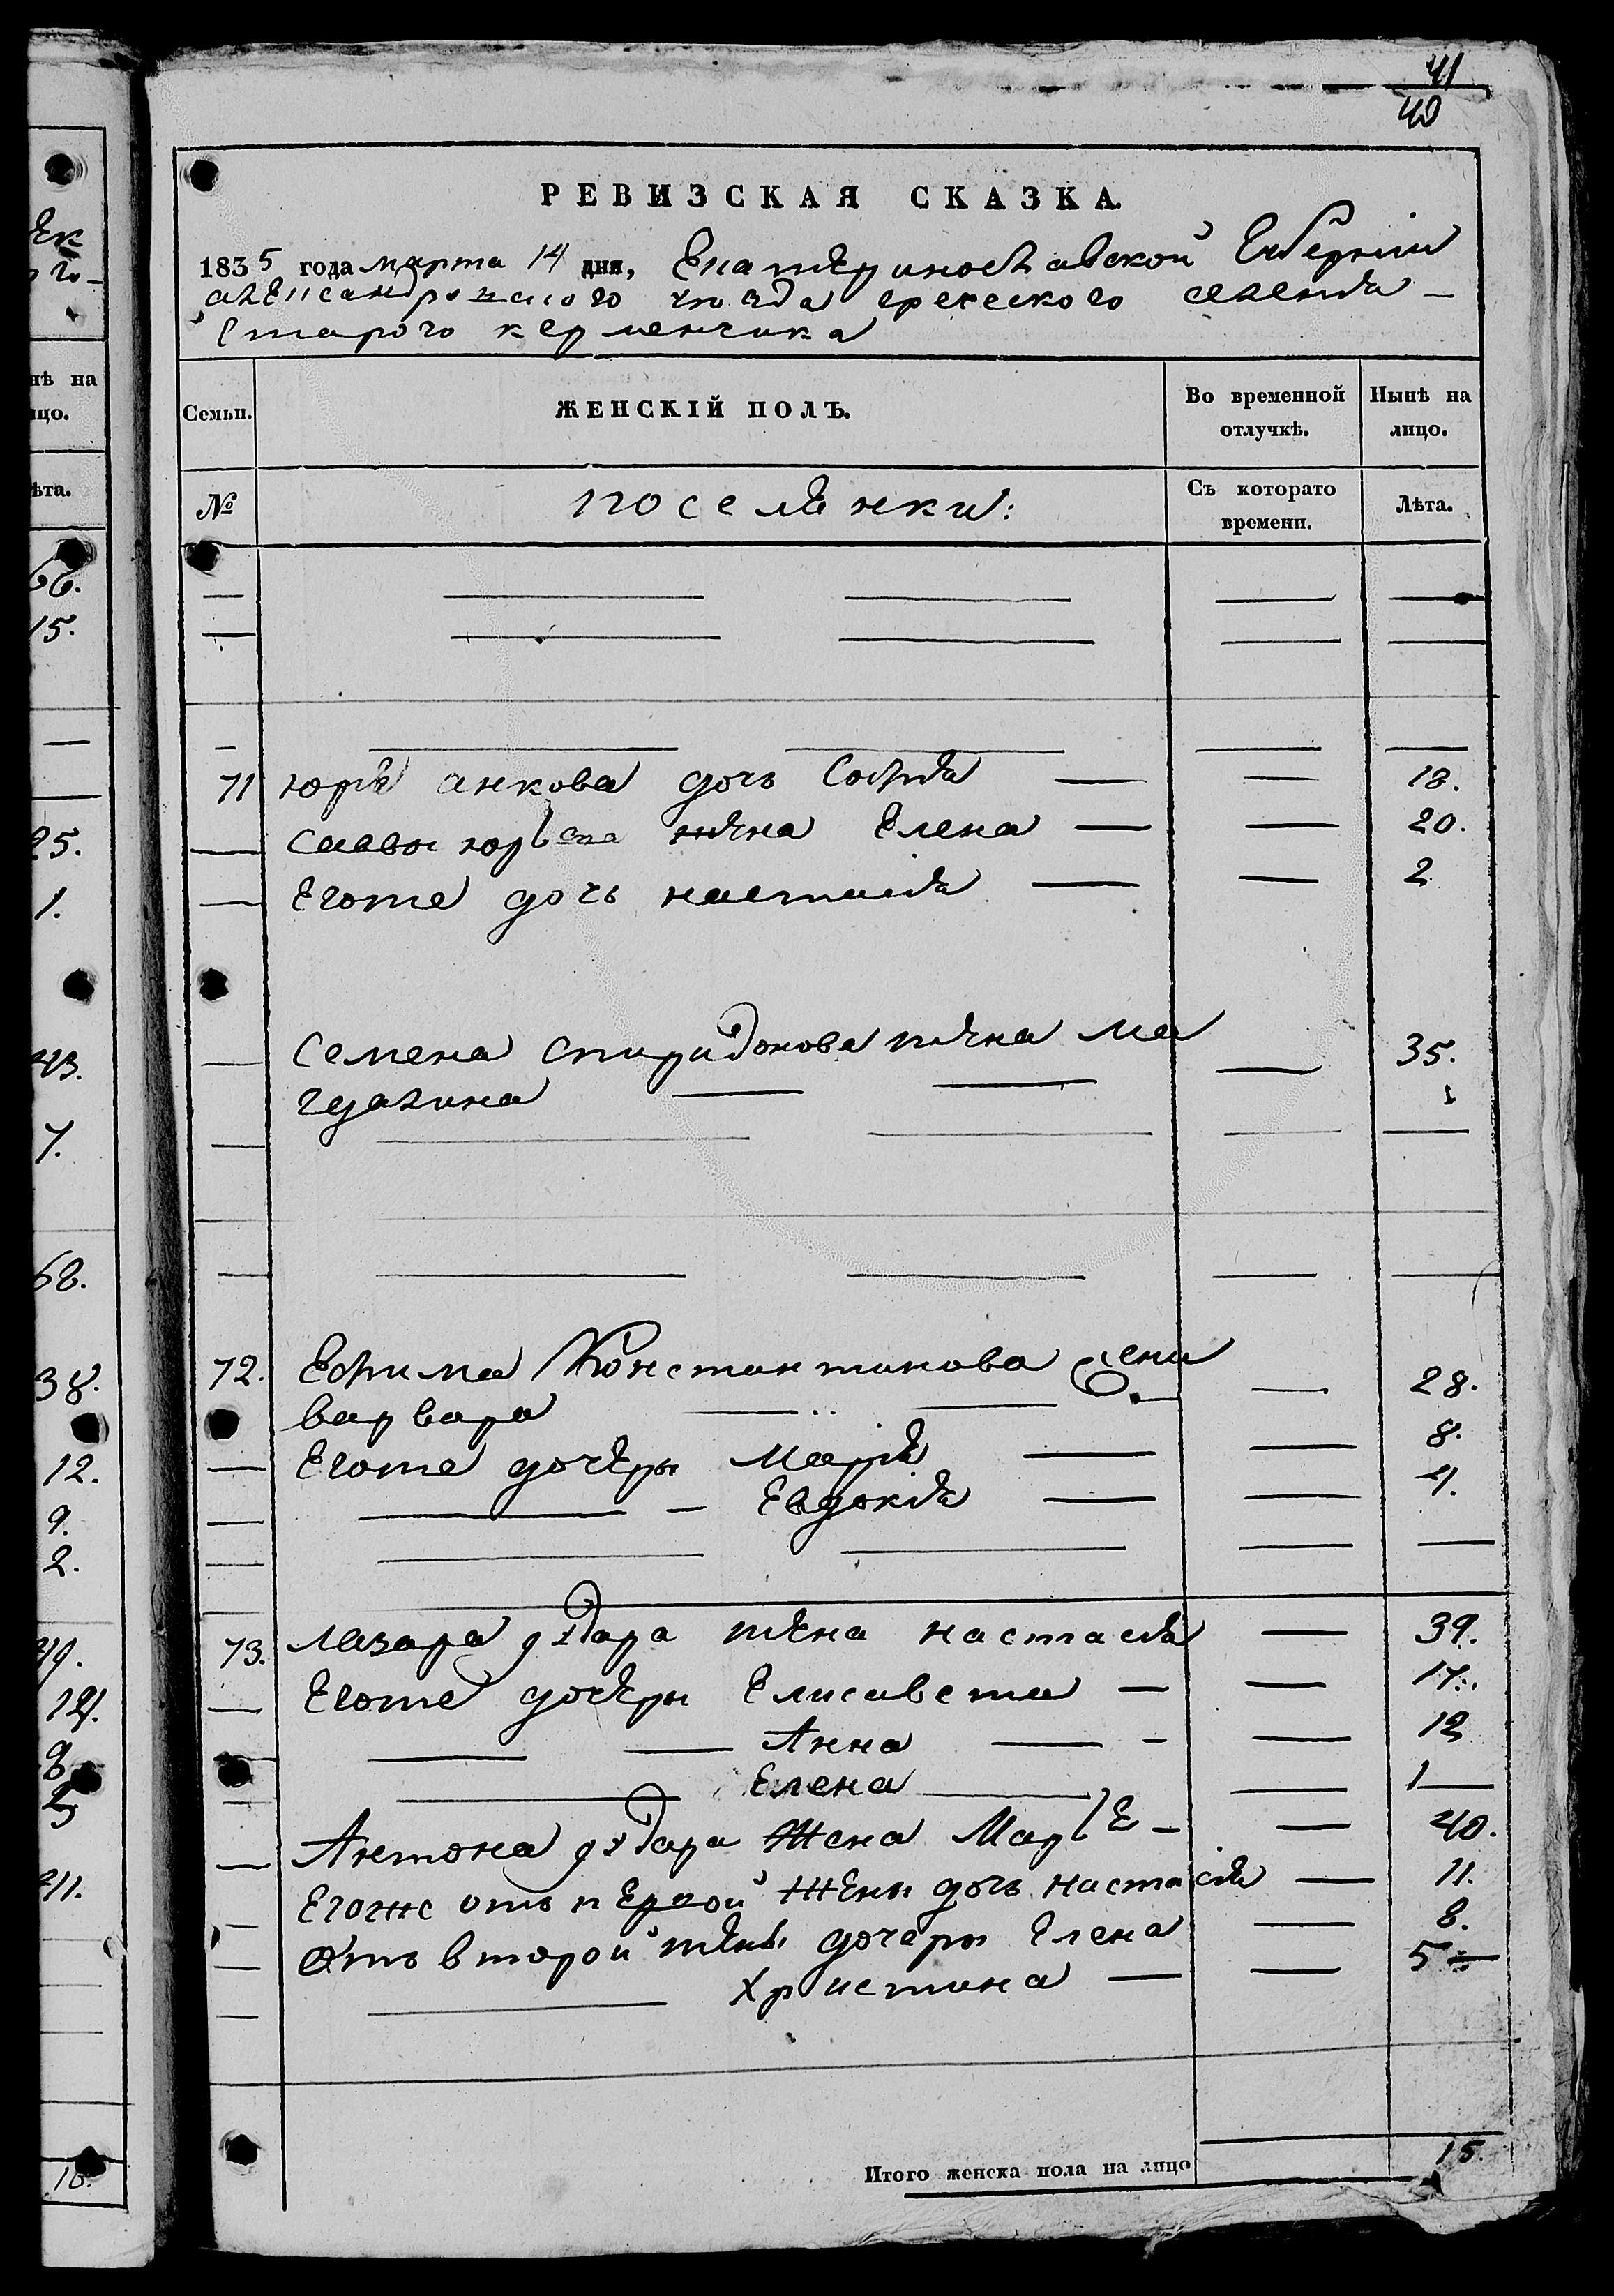 41
40
РЕВИЗСКАЯ СКАЗКА.
1835 года марта 14 дня, Екатеринославской Губернии
александровского уезда греческого селения
Старого керменчика
Семьи. ЖЕНСКІЙ ПОЛЪ. Во временной отлучкѣ. Нынѣ на лицо.
№ поселянки: Съ котораго времени. Лѣта.
71 юрія анкова дочь Софія — — 18.
— саввы юрьева жена Елена — — 20.
— Егоже дочь настасія — — 2
— Семена Спиридонова жена ма — 35.
гдалина — —
72. Ефима Константинова жена — 28.
варвара — —
— Егоже дочери Марія — — 8.
— Евдокія — — 4.
73. Лазара жена настасія — 39.
— Егоже дочери Елисавета — — 17.
— Анна — — 12
— Елена — 1
— Антона Жена Марʼе — — 40.
— Егоже отъ первой Жены дочь настасія — 11.
— Отъ второй жены дочери Елена — 8.
— Христина — — 5
Итого женска пола на лицо 15.
нѣ на
ицо.
ѣта.
66.
15.
25.
1.
43.
7.
68.
38.
12.
9.
2.